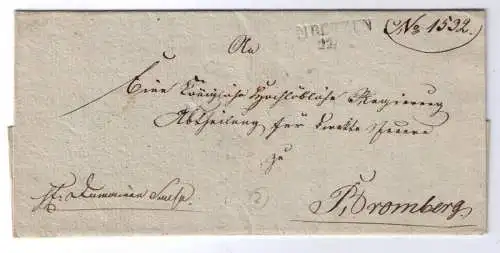 No 1532.
22
An
Eine Königliche Hochlöbliche Regierung
Abtheilung für direkte Steuern
zu
Bromberg